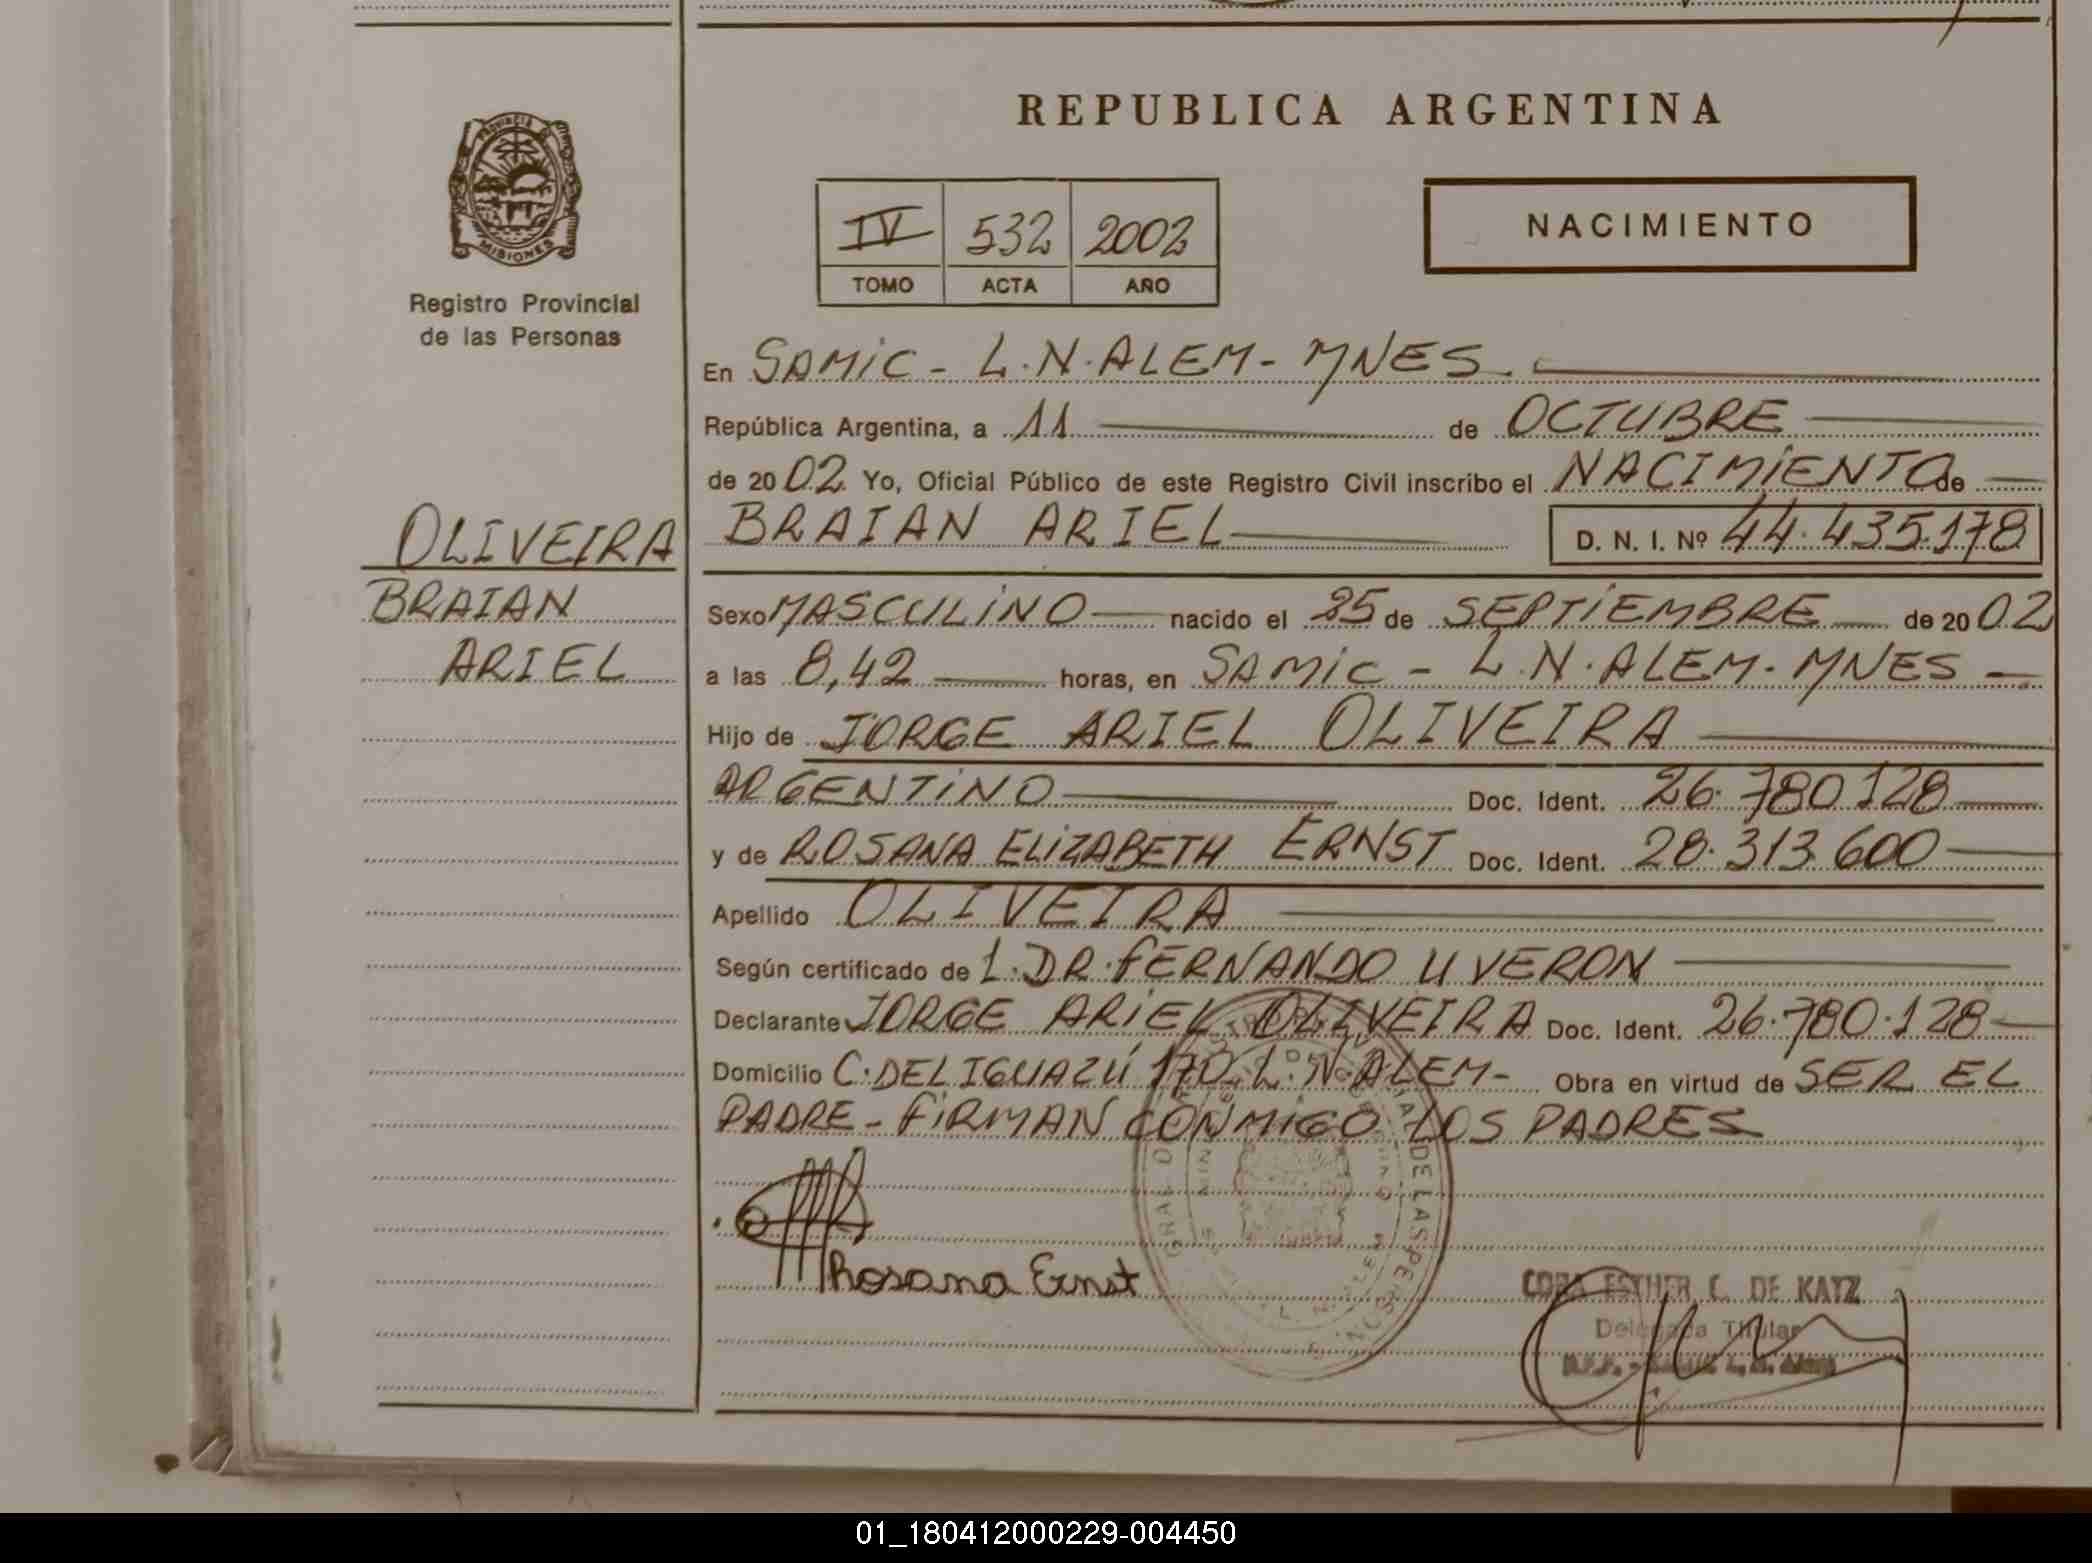 REPUBLICA ARGENTINA
PROVINCIA DE
MISIONES
Registro Provincial
de las Personas
IV 532 2002
TOMO ACTA AÑO
NACIMIENTO
En SAMiC - L.N.ALEM - MNES.
República Argentina, a 11 de OCTUBRE
de 2002 Yo, Oficial Público de este Registro Civil inscribo el NACIMiENTO de
OLIVEIRA
BRAIAN
ARIEL
BRAIAN ARIEL D. N. I. Nº 44.435.178
Sexo MASCULiNO nacido el 25 de SEPTiEMBRE de 2002
a las 8,42 horas, en SAMiC - L.N.ALEM. MNES
Hijo de JORGE ARIEL OLIVEIRA
ARGENTiNO Doc. Ident. 26.780.128
y de ROSANA ELiZABETH ERNST Doc. Ident. 28.313.600
Apellido OLIVEIRA
Según certificado de L. DR. FERNANDO U VERON
Declarante JORGE ARiEL OLIVEIRA Doc. Ident. 26.780.128
Domicilio C. DEL IGUAZÚ 170. L.N.ALEM- Obra en virtud de SER EL
PADRE - FiRMAN CONMiGO LOS PADRES
Rosana Ernst
CORA ESTHER C. DE KATZ
Delegada Titular
01_180412000229-004450